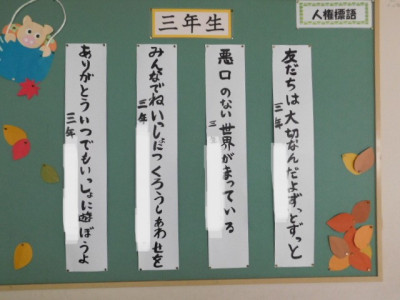 三年生
人権標語
友だちは大切なんだよずっとずっと
三年
悪口のない世界がまっている
三
みんなでね、いっしょにつくろうしあわせを
三年
ありがとういつでもいっしょに遊ぼうよ
三年